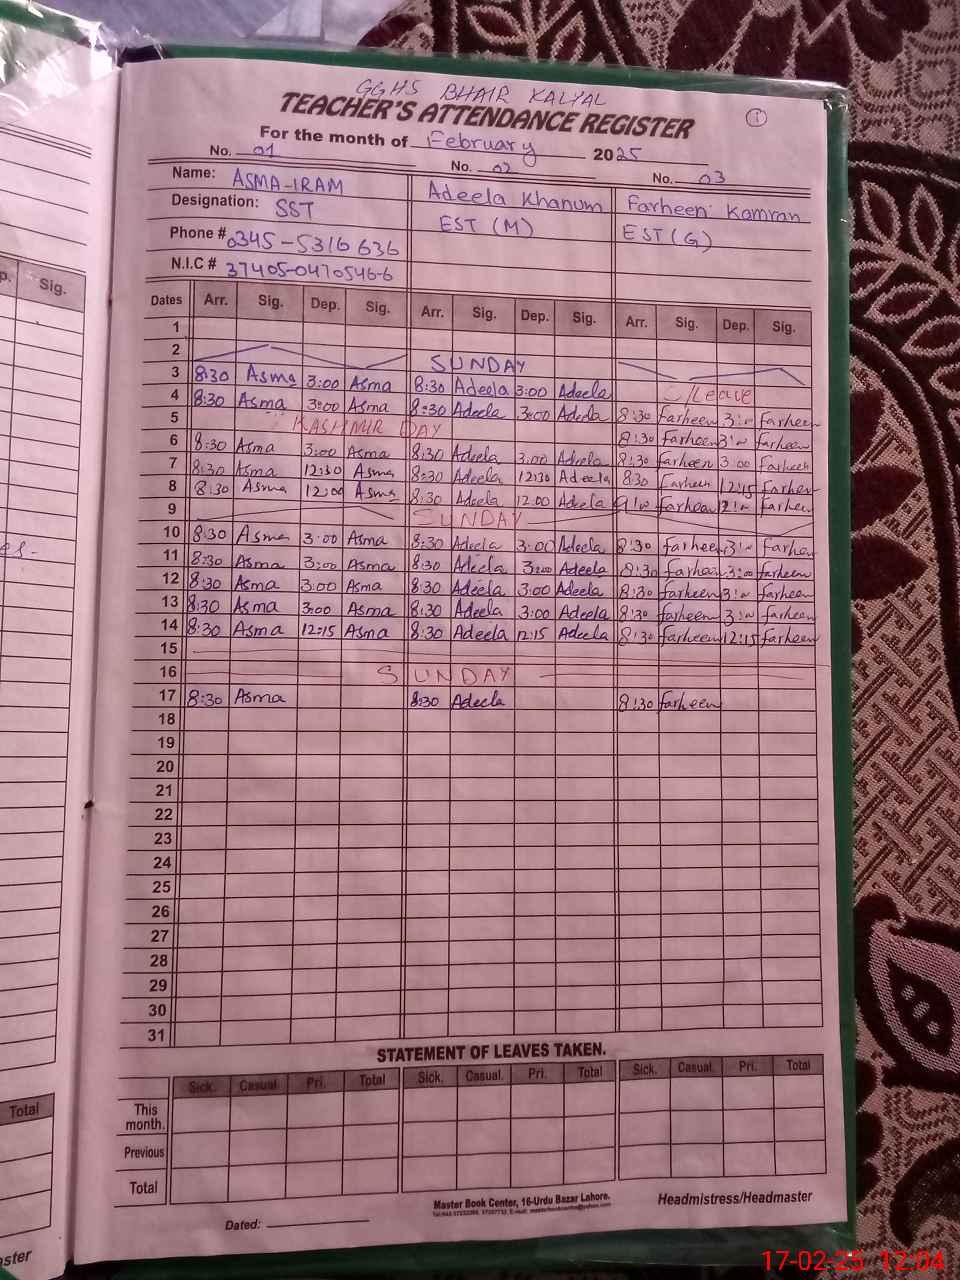 GGHS BHAIR KALYAL
TEACHER'S ATTENDANCE REGISTER
1
For the month of February 2025
No. 01 No. 02 No. 03
Name: ASMA-IRAM Adeela Khanum Farheen Kamran
Designation: SST EST (M) EST (G)
Phone # 0345-5316636
N.I.C # 37405-0470546-6
Dates Arr. Sig. Dep. Sig. Arr. Sig. Dep. Sig. Arr. Sig. Dep. Sig.
1
2 SUNDAY
3 8:30 Asma 3:00 Asma 8:30 Adeela 3:00 Adeela C/Leave
4 8:30 Asma 3:00 Asma 8:30 Adeela 3:00 Adeela 8:30 farheen 3:00 Farheen
5 KASHMIR DAY 8:30 farheen 3:00 farheen
6 8:30 Asma 3:00 Asma 8:30 Adeela 3:00 Adeela 8:30 farheen 3:00 Farheen
7 8:30 Asma 12:30 Asma 8:30 Adeela 12:30 Adeela 8:30 farheen 12:15 Farheen
8 8:30 Asma 12:00 Asma 8:30 Adeela 12:00 Adeela farheen farheen
9 SUNDAY
10 8:30 Asma 3:00 Asma 8:30 Adeela 3:00 Adeela 8:30 farheen 3:00 farheen
11 8:30 Asma 3:00 Asma 8:30 Adeela 3:00 Adeela 8:30 farheen 3:00 farheen
12 8:30 Asma 3:00 Asma 8:30 Adeela 3:00 Adeela 8:30 farheen 3:00 farheen
13 8:30 Asma 3:00 Asma 8:30 Adeela 3:00 Adeela 8:30 farheen 3:00 farheen
14 8:30 Asma 12:15 Asma 8:30 Adeela 12:15 Adeela 8:30 farheen 12:15 farheen
15
16 SUNDAY
17 8:30 Asma 8:30 Adeela 8:30 farheen
18
19
20
21
22
23
24
25
26
27
28
29
30
31
STATEMENT OF LEAVES TAKEN.
Sick. Casual Pri. Total Sick. Casual. Pri. Total Sick. Casual. Pri. Total
This month.
Previous
Total
Master Book Center, 16-Urdu Bazar Lahore.
Headmistress/Headmaster
Dated:
Sig.
Total
17-02-25 12:04